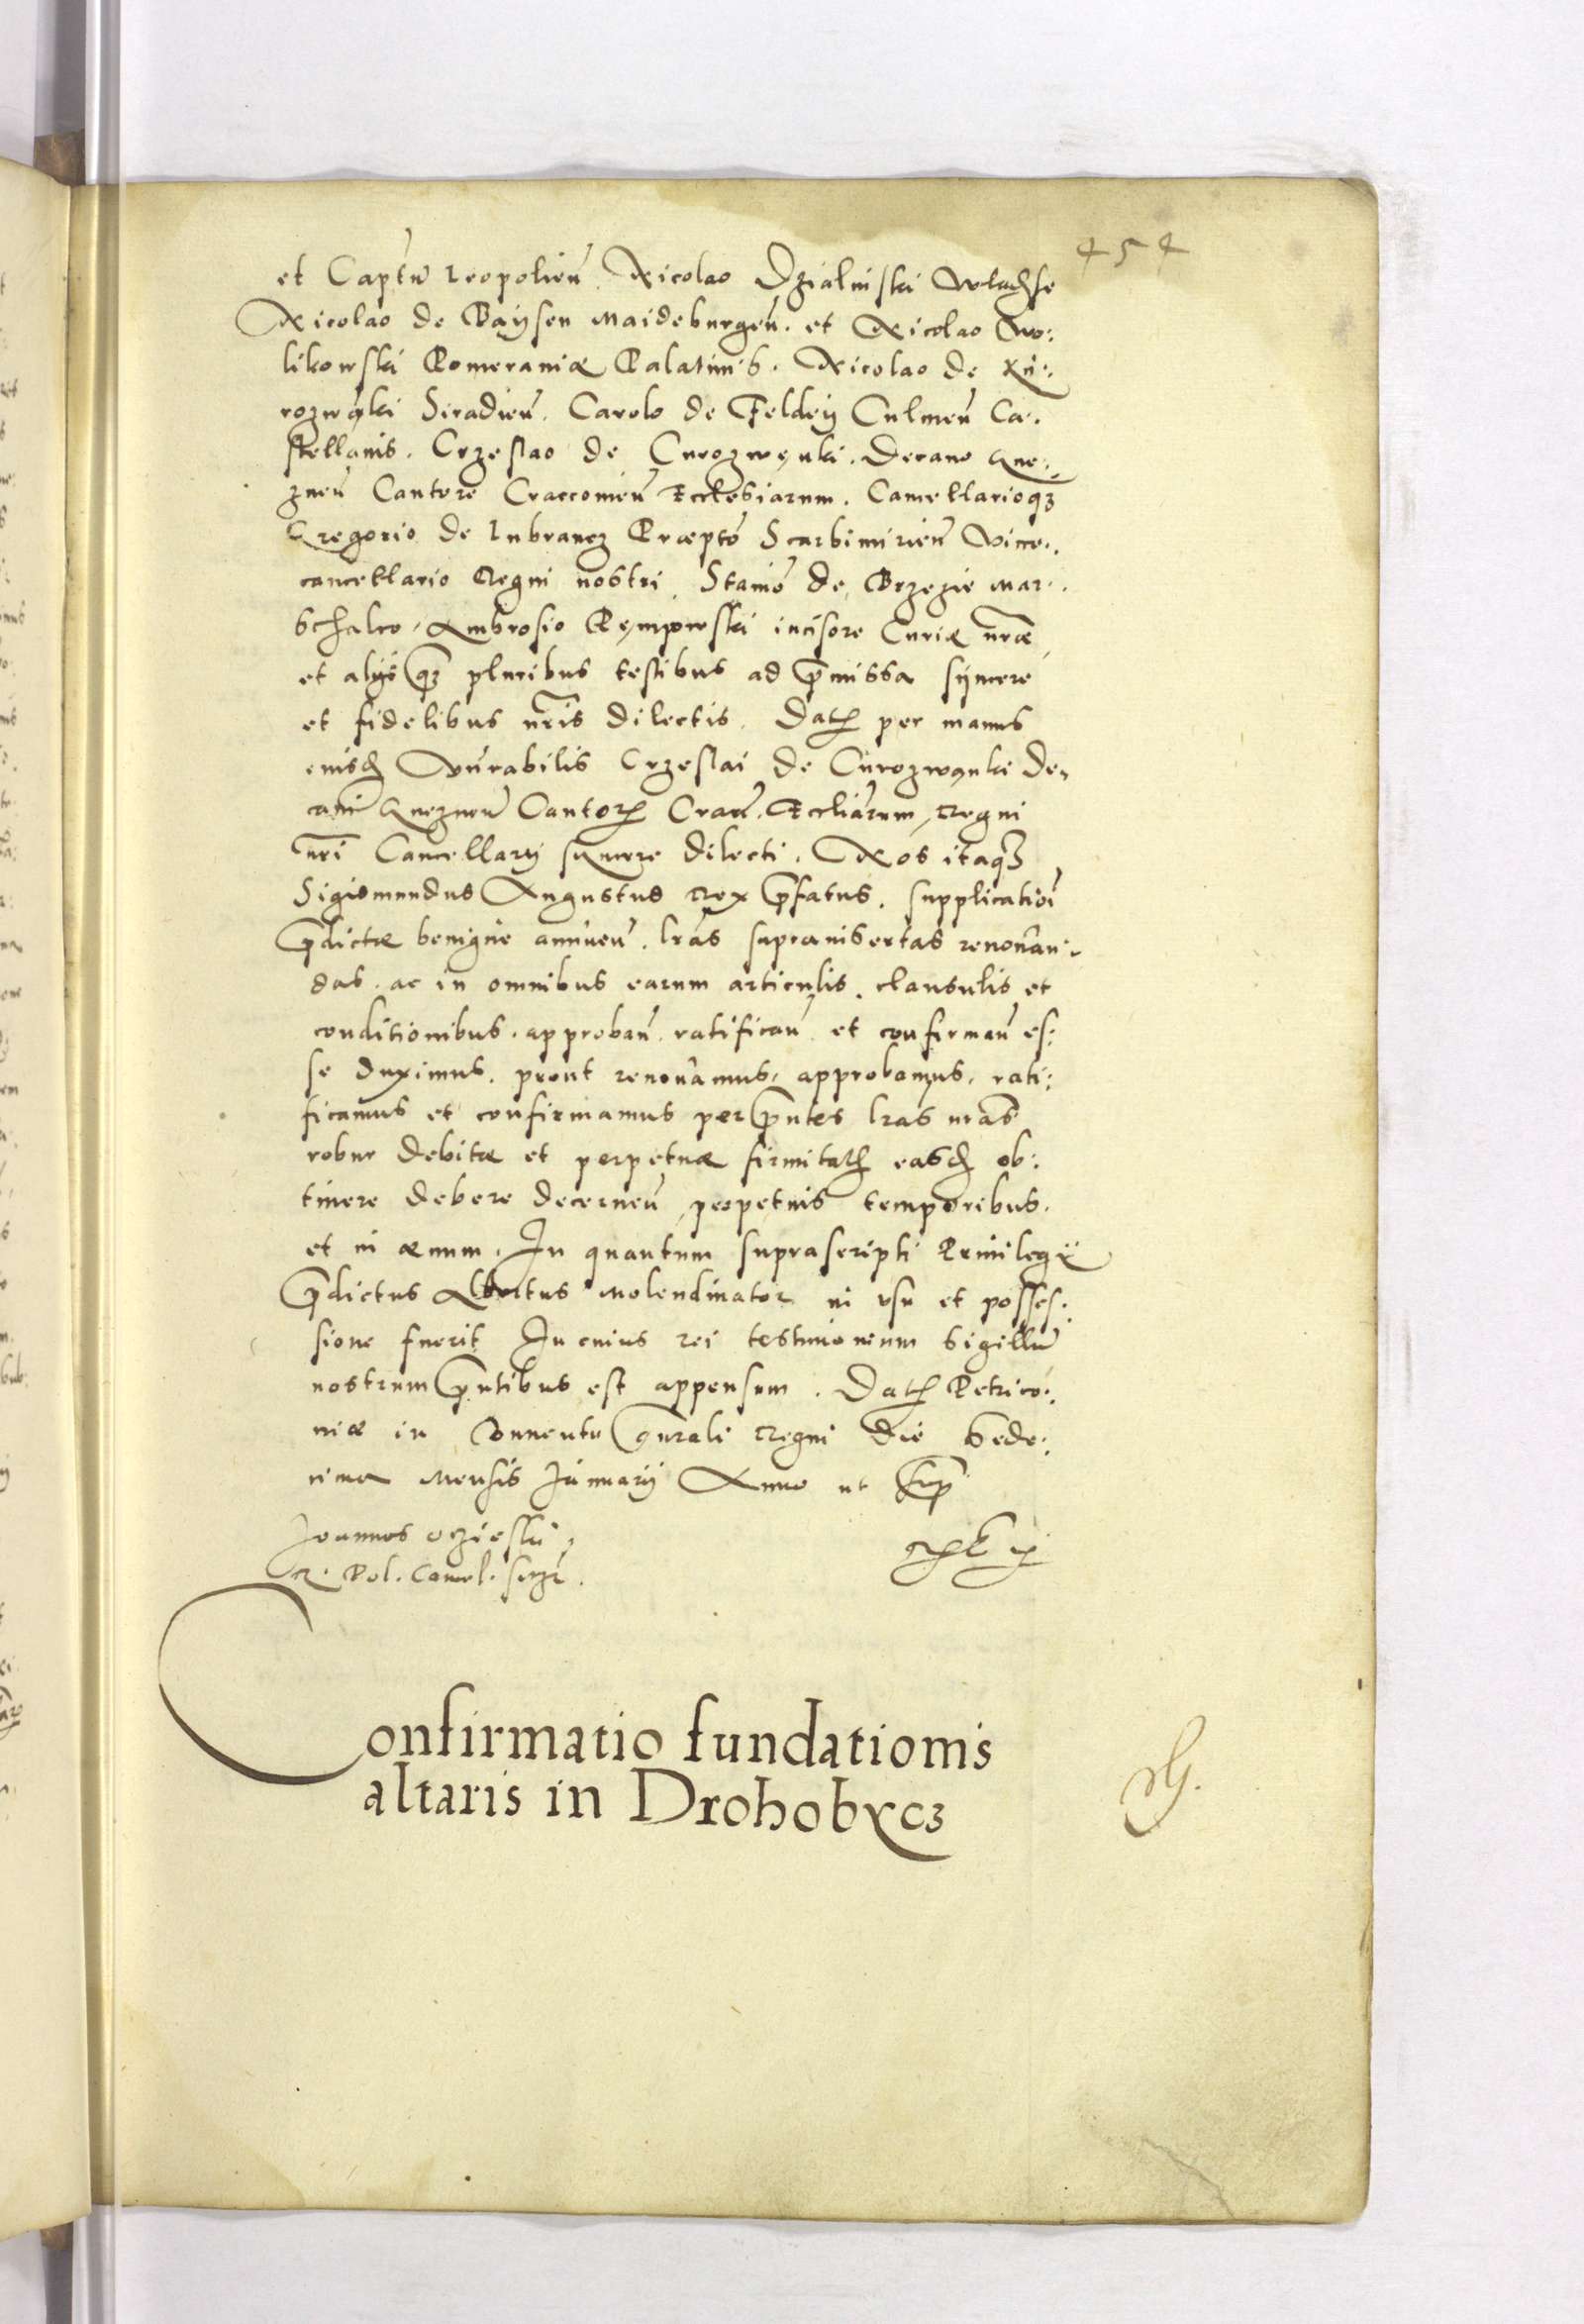 454
et Captu Leopolien. Nicolao Dzialinski Wladse
Nicolao de Baÿsen Maideburgen. et Nicolao Wo:
likowski Pomeraniæ Palatinis. Nicolao de Ku:
rozwąki Siradien. Carolo de Feldeÿ Culmen Ca:
stellanis. Crzeslao de Curozwęnki. Decano Gne:
znen Cantore Cracovien Ecclesiarum. Cancellarioq3
Gregorio de Lubrancz Præpto Scarbimirien Vice:
cancellario Regni nostri. Stanio de Brzezie Mar:
schalco, Ambrosio Pęmpowski incisore Curiæ nræ
et alijs q3 pluribus testibus ad pmissa sÿncere
et fidelibus nris dilectis. Dat per manus
eiusd Vnrabilis Crzeslai de Curozwąnki De,
cani Gneznen Cantor Cracn. Eccliarum, Regni
nri Cancellarij sÿncere dilecti. Nos itaq3
Sigismundus Augustus Rex pfatus. supplicationi
pdictæ benigne annuen. lras suprainsertas renouan:
das. ac in omnibus earum articulis. clausulis et
conditionibus. approban. ratifican. et confirman es:
se duximus. prout renouamus, approbamus, rati:
ficamus et confirmamus per pntes lras nras
robur debitæ et perpetuæ firmitat easd ob:
tinere debere decernen, perpetuis temporibus.
et in æuum. In quantum suprascripti Priuilegij
pdictus Albertus Molendinator in vsu et posses:
sione fuerit In cuius rei testimonium sigillu
nostrum pntibus est appensum. Dat Petrico:
uiæ in Conuentu gnrali Regni die Sede:
cima Mensis Januarij Anno ut sup
Joannes Ocziesski,
R. Pol. Cancel. sspt.
Confirmatio fundationis
altaris in Drohobycz